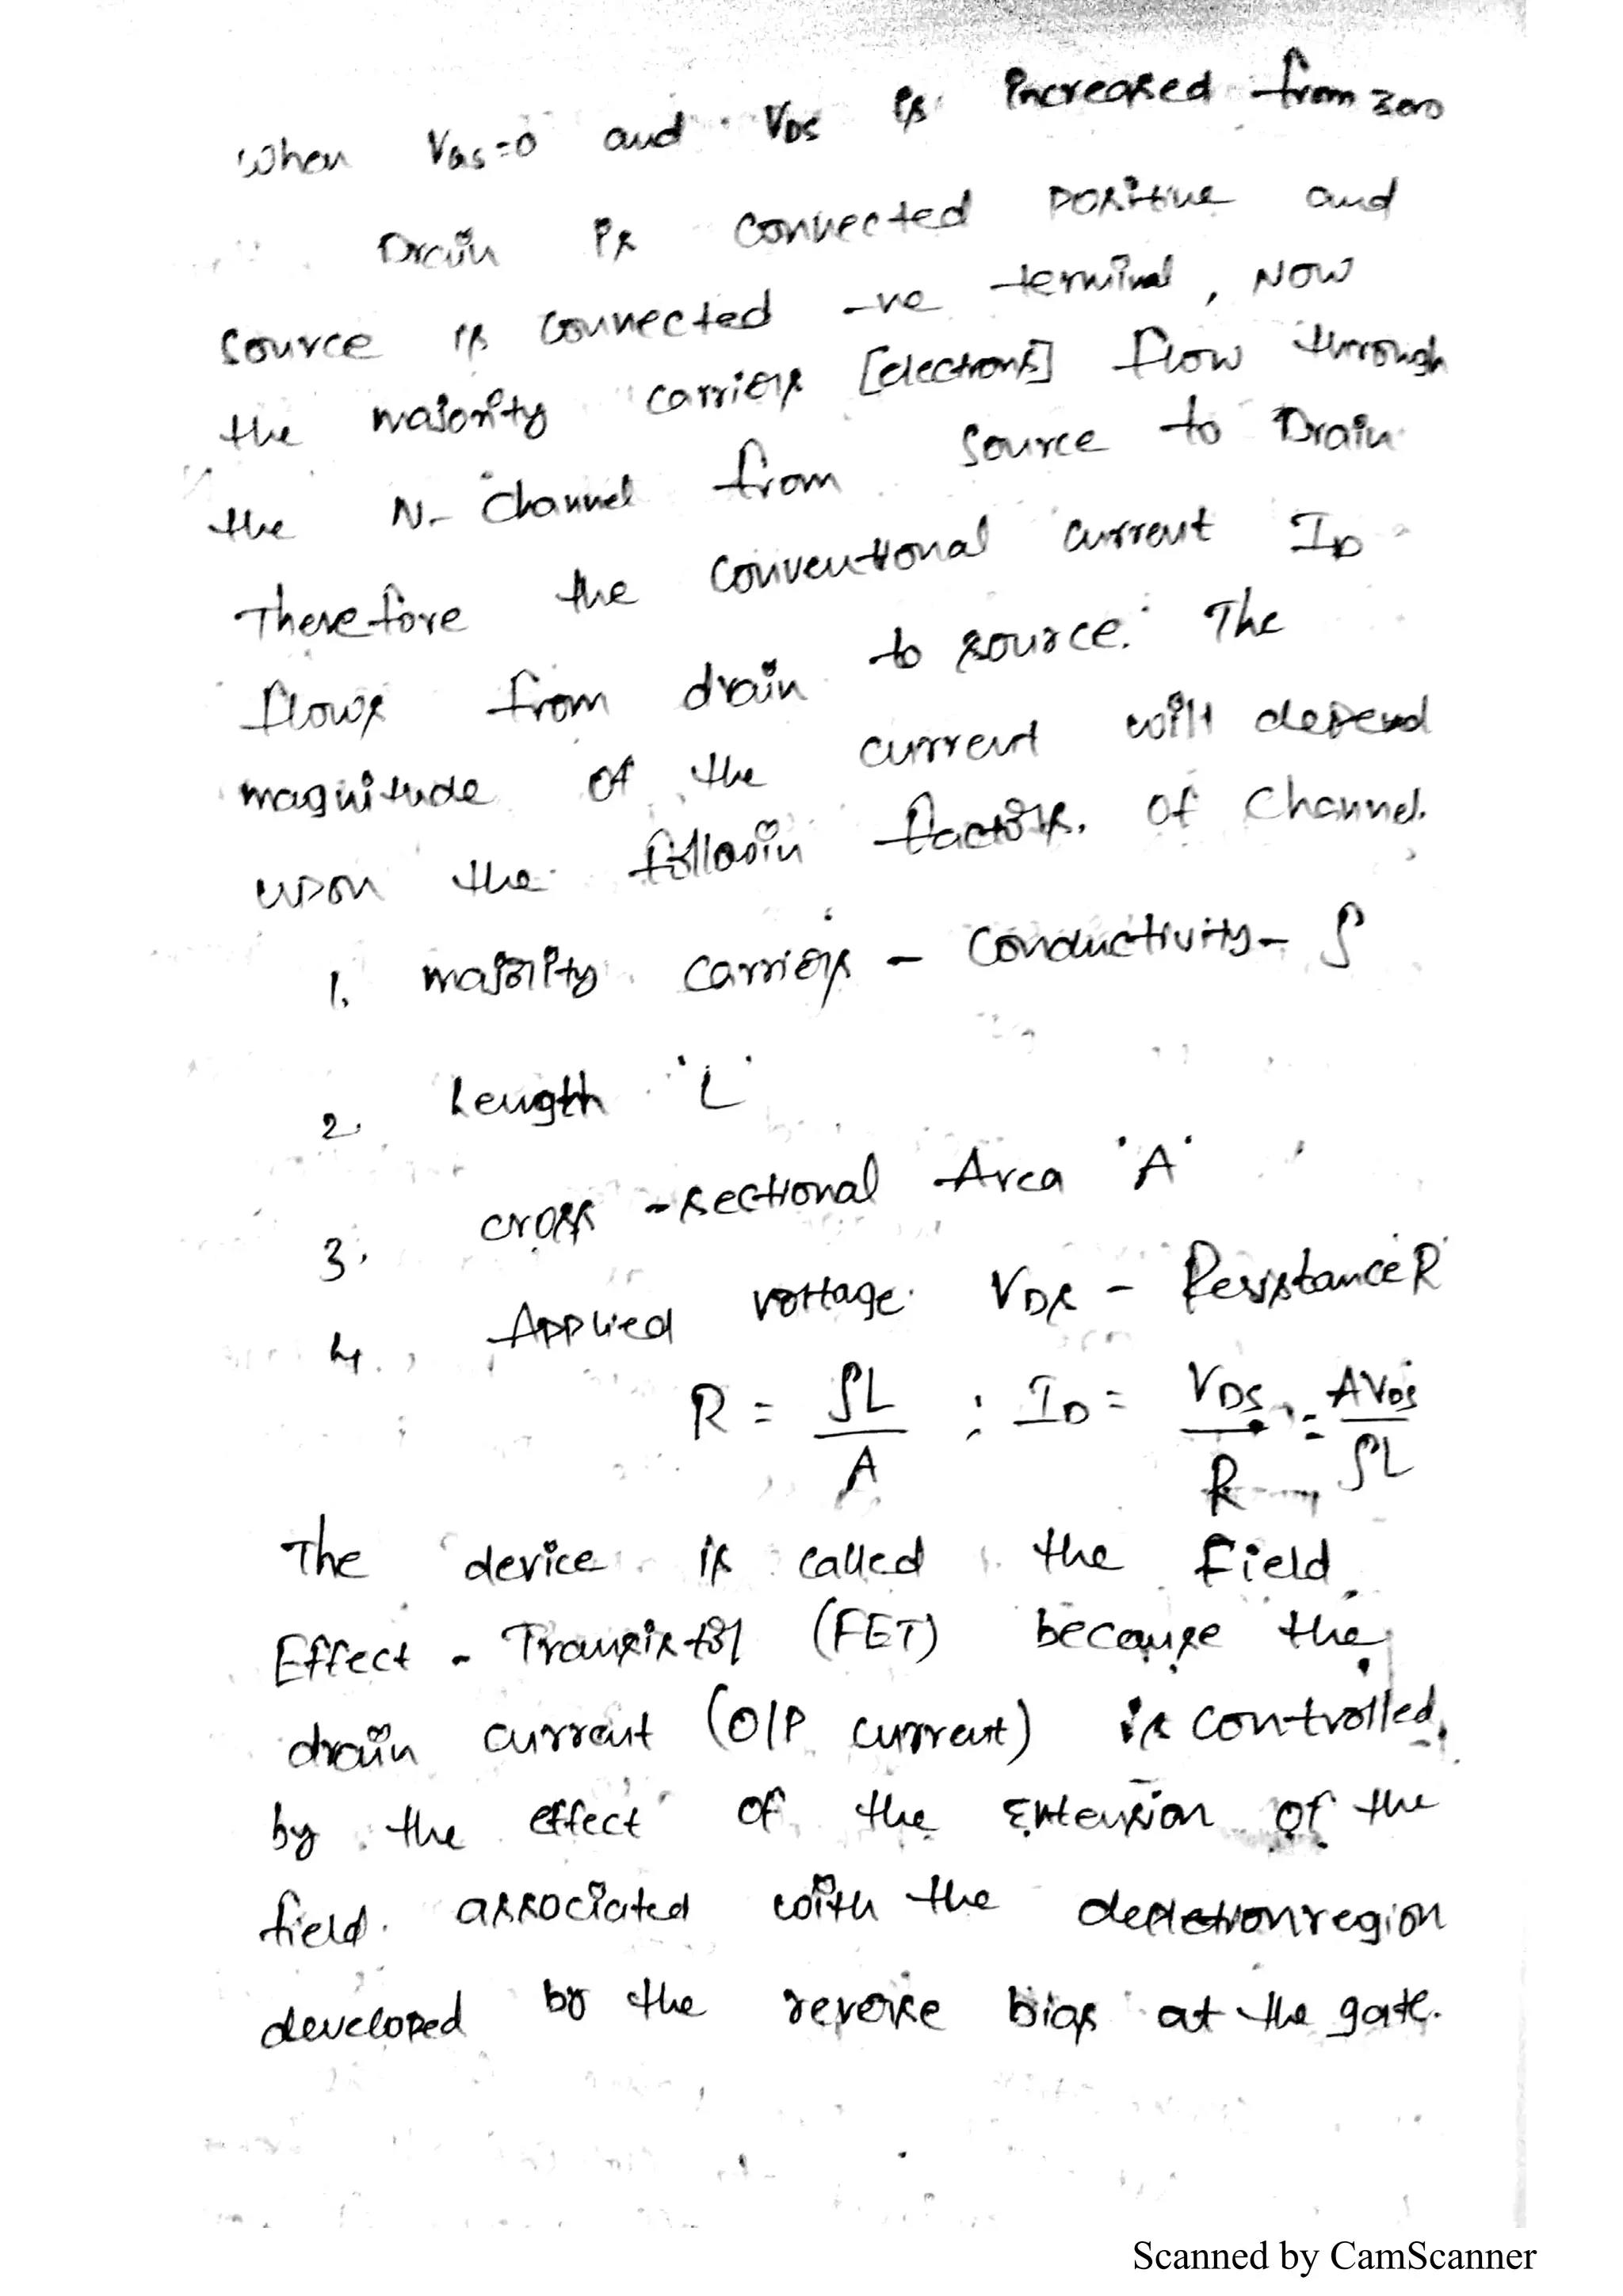 When VGS=0 and VDS is increased from zero
Drain is connected positive and
source is connected -ve terminal, Now
the majority carriers [electrons] flow through
the N- channel from source to Drain
Therefore the conventional current ID
flows from drain to source. The
magnitude of the current will depend
upon the followin factors. of channel.
1. majority carriers - conductivity - ρ
2. Length 'L'
3. cross -sectional Area 'A'
4. Applied voltage VDS - Resistance 'R'
R = ρL/A ; ID = VDS/R = AVDS/ρL
The device is called the Field
Effect - Transistor (FET) because the
drain current (O/P current) is controlled
by the effect of the Extension of the
field associated with the depletion region
developed by the reverse bias at the gate.
Scanned by CamScanner